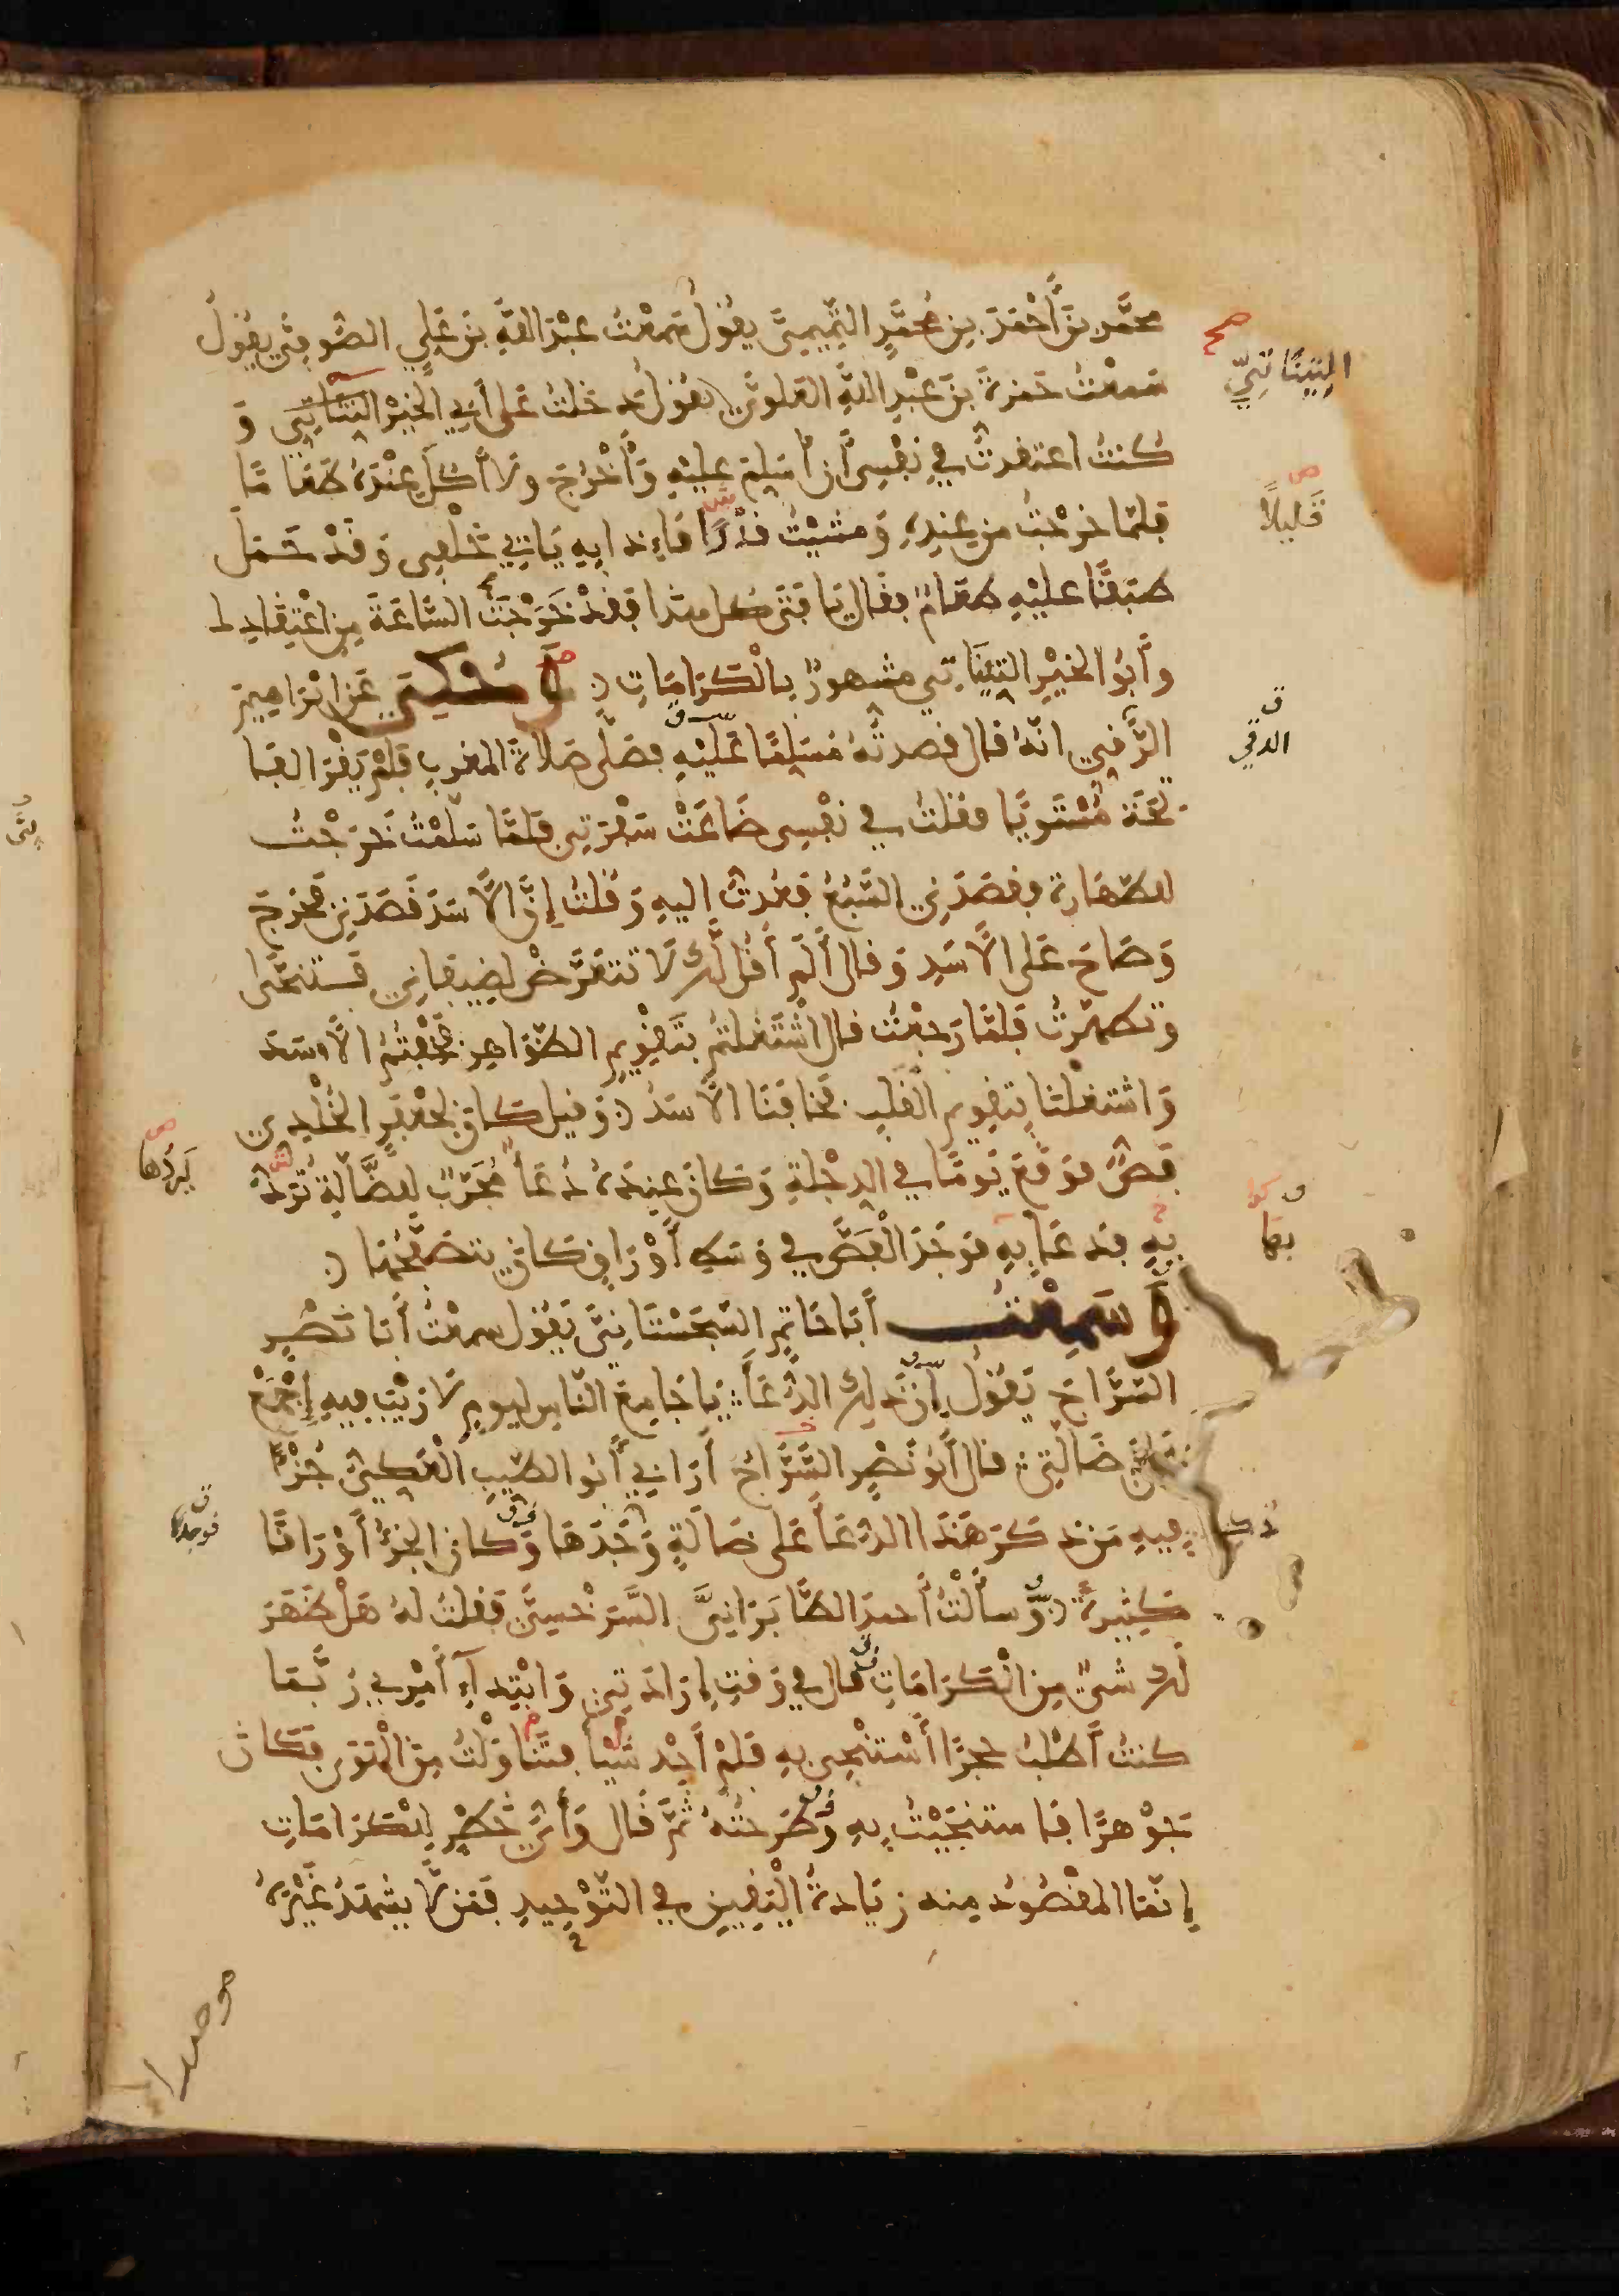 محمَّد بنَ أَحْمَدَ بنِ مُحمَّدٍ التَّمِيمِيَّ يَقُولُ سَمِعْتُ عَبْدَ اللَّهِ بنَ عَلِيٍ الصُّوفِيَّ يَقُولُ
المتِينَاتِيِّ
سَمِعْتُ حَمزةَ بنَ عَبْدِ اللَّهِ العَلَويَّ يَقُولُ دَخلتُ عَلى أَبِي الخَيْرِ التِّينَاتِيِّ وَ
كُنتُ اعتَقدتُ فِي نَفْسِى أَن أُسَلِّمَ عليْهِ وَأَخْرُجَ ولاَ أَكُلَ عِنْدَهُ طَعَامًا
قَليلاً
فلمّا خرجْتُ من عِندِهِ وَمشَيْتُ قدْرًا فَاءِذا بِهِ يَاتِي خَلْفِى وَقَدْ حَمَل
طَبَقًا عليْهِ طعَامٌ فقَال يَا فتَى كل هذا فقدْ خَرَجْتَ السَّاعَةَ مِن اعْتِقَادِك
وأَبُو الخيْرِ التِينَاتِي مشهورٌ بالْكَرَامَاتِ وَحُكِيَ عَن ابْرَاهِيمَ
الدقي
الرَّقِي انَّهُ قال قصدتُهُ مُسَلِّمًا عَليْهِ فصَلَّى صَلاَةَ المغربِ فلمْ يَقْرَ الفَا
تِحَةَ مُسْتَوِيًا فقلتُ في نفْسِى ضَاعَتْ سَفْرَتِي فلمَّا سَلّمْتُ خَرَجْتُ
للطّهَارة فقصَدَنِي السَّبُعُ فَعُدتُ إليهِ وَقُلتُ إِنَّ الأَسَدَ قَصَدَنِي فخرجَ
وَصَاحَ عَلى الأَسَدِ وَقال أَلَم أَقُل لَّكَ لاَ تتعَرَّضْ لضِيفَانِي فَستنحَّى
وتَطهّرتُ فلمَّا رَجعْتُ قال اشْتَغلتُم بتَقْوِيمِ الظّوَاهِرِ فخِفْتُمُ الأَسَدَ
وَاشتغلْنَا بتقويمِ القَلبِ فخافَنَا الأَسَدُ وَقيل كان لجَعْفَرٍ الخُلْدِي
يَردّها
فصٌّ فوَقَعَ يَومًا في الدِجْلَةِ وَكانَ عِندَهُ دُعَاءٌ مُجَرّبٌ للضَّالَّةِ تُرَدُّ
بهَا
بِهِ فدعَا بِهِ فوَجدَ الْفَصَّ في وَسَطِ أَوْرَاقٍ كانَ يتصَفَّحُهَا
وَسَمِعْتُ أَبَا حَاتِمٍ السِّجِسْتَانِيَّ يَقُول سمعْتُ أَبَا نَصْرٍ
السَّرَّاجَ يَقُولُ إِنَّ ذلِكَ الدُّعَاءَ يَا جَامِعَ النَّاسِ ليومٍ لاَ رَيْبَ فيهِ إِجْمَعْ
ضَالَّتِي قال أَبُو نَصْرٍ السَّرَّاجُ أَرَانِي أَبُو الطّيِّبِ الْعَكِّيُّ جُزْءًا
فيهِ مَن ذَكرَ هَذَا الدُّعَاءَ عَلى ضَالّةٍ وَجَدَهَا وَكان الجزءُ أَوْرَاقًا
فوجدها
كثيرةً وَسأَلْتُ أَحمدَ الطَّابَرَانِيَّ السَّرَخْسِيَّ فقلتُ لهُ هَلْ ظَهَرَ
لَكَ شىٌ مِن الْكَرَامَاتِ فقال في وَقتِ إِرَادَتِي وَابْتِدَآءِ أَمْرِي رُبَّمَا
كنتُ أَطْلبُ حجَرًا أَسْتنْجِى بهِ فلمْ أَجِد شَيْأً فتَنَاوَلْتُ مِنَ الْهَوَى فكَان
جَوْهرًا فاستنجَيْتُ بهِ وَطَرَحتُهُ ثمَّ قَال وَأَيُّ خَطَرٍ لِلْكَرَامَاتِ
إِنّمَا المقْصُودُ منه زيَادةُ الْيَقِينِ في التّوْحِيدِ فمَن لاَّ يشْهَدُ غَيْرَهُ
موجدا